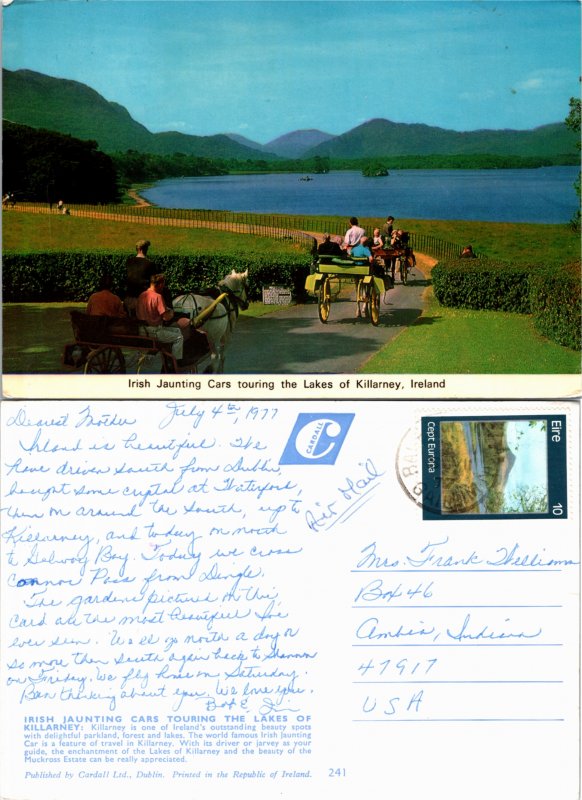 Irish Jaunting Cars touring the Lakes of Killarney, Ireland
Dearest Mother July 4th, 1977
Ireland is beautiful. We
have driven south from Dublin,
bought some crystal at Waterford,
then on around the South, up to
Killarney, and today on north
to Galway Bay. Today we cross
Connor Pass from Dingle.
The gardens pictured on this
card are the most beautiful I've
ever seen. We'll go north a day or
so more then south again back to Shannon
on Friday. We fly home on Saturday.
Been thinking about you. We love you.
Bob &
CARDALL
C
Air Mail
Eire
Cept Europa
10
Mrs. Frank Williams
Box 46
Ambia, Indiana
47917
USA
IRISH JAUNTING CARS TOURING THE LAKES OF
KILLARNEY: Killarney is one of Ireland's outstanding beauty spots
with delightful parkland, forest and lakes. The world famous Irish Jaunting
Car is a feature of travel in Killarney. With its driver or jarvey as your
guide, the enchantment of the Lakes of Killarney and the beauty of the
Muckross Estate can be really appreciated.
Published by Cardall Ltd., Dublin. Printed in the Republic of Ireland. 241